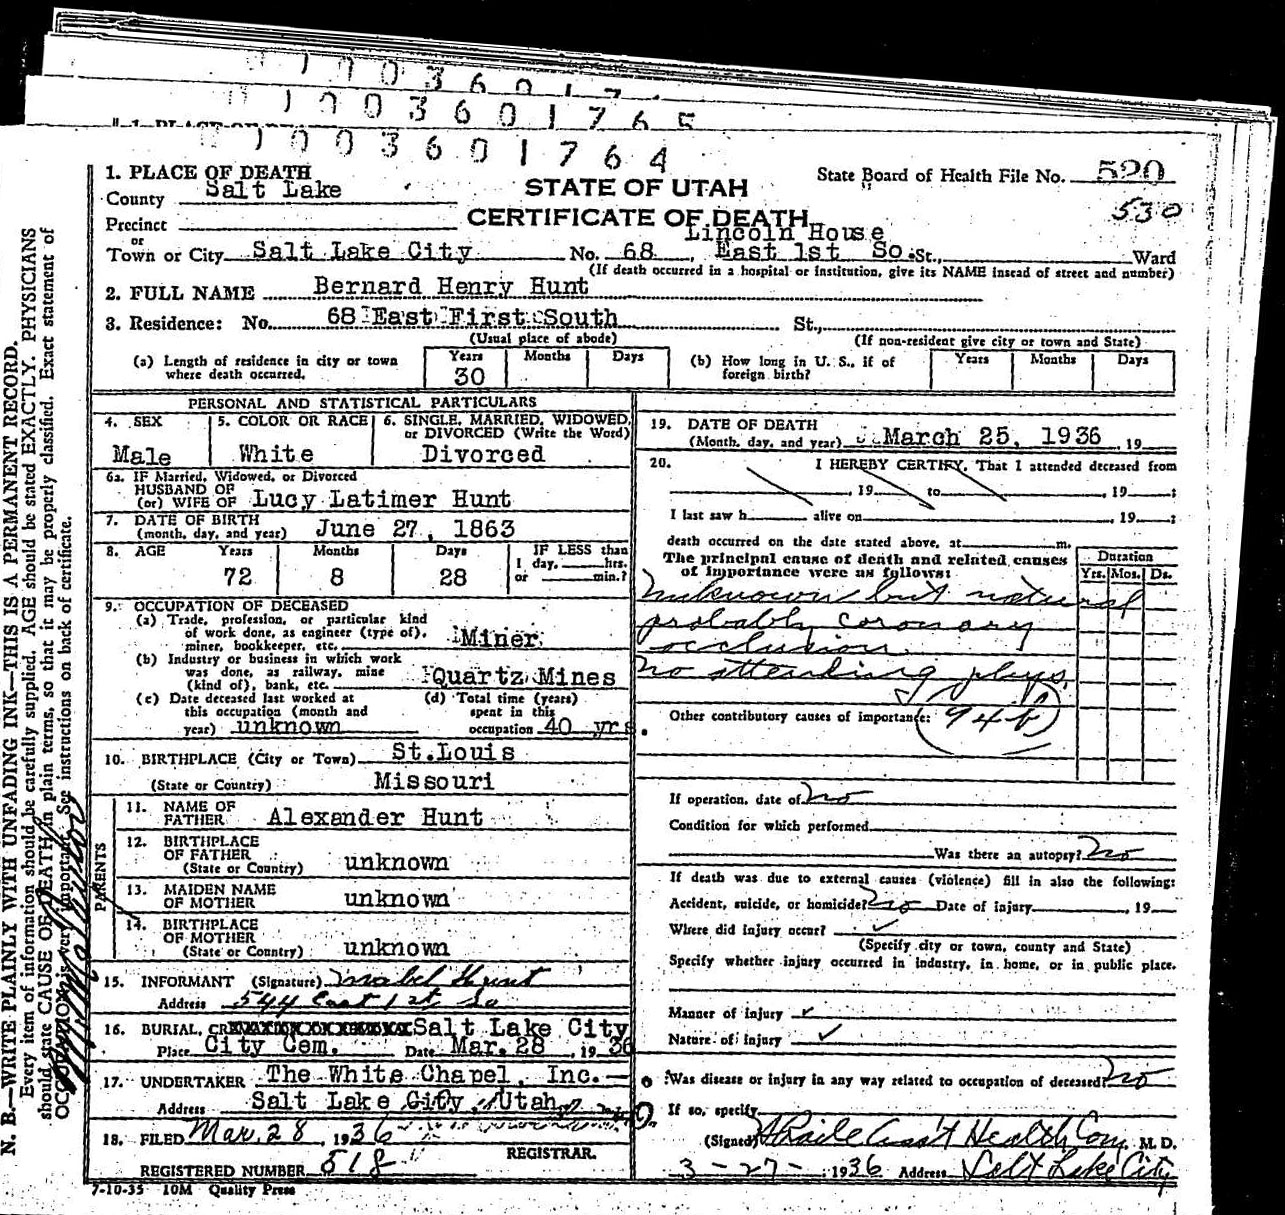 1003601765
1003601764
1. PLACE OF DEATH
County Salt Lake
STATE OF UTAH
CERTIFICATE OF DEATH
State Board of Health File No. 520
530
Precinct
or
Town or City Salt Lake City No. 68 Lincoln House East 1st So. St., Ward
(If death occurred in a hospital or institution, give its NAME insead of street and number)
2. FULL NAME Bernard Henry Hunt
3. Residence: No. 68 East First South St.,
(Usual place of abode) (If non-resident give city or town and State)
(a) Length of residence in city or town where death occurred. Years 30 Months Days
(b) How long in U. S., if of foreign birth? Years Months Days
PERSONAL AND STATISTICAL PARTICULARS
4. SEX Male
5. COLOR OR RACE White
6. SINGLE, MARRIED, WIDOWED, or DIVORCED (Write the Word) Divorced
6a. IF Married, Widowed, or Divorced
HUSBAND OF
(or) WIFE OF Lucy Latimer Hunt
7. DATE OF BIRTH
(month, day, and year) June 27, 1863
8. AGE Years 72 Months 8 Days 28 IF LESS than 1 day, hrs. or min.?
9. OCCUPATION OF DECEASED
(a) Trade, profession, or particular kind
of work done, as engineer (type of),
miner, bookkeeper, etc. Miner
(b) Industry or business in which work
was done, as railway, mine
(kind of), bank, etc. Quartz Mines
(c) Date deceased last worked at
this occupation (month and
year) unknown
(d) Total time (years)
spent in this
occupation 40 yrs.
10. BIRTHPLACE (City or Town) St. Louis
(State or Country) Missouri
PARENTS
11. NAME OF
FATHER Alexander Hunt
12. BIRTHPLACE
OF FATHER
(State or Country) unknown
13. MAIDEN NAME
OF MOTHER unknown
14. BIRTHPLACE
OF MOTHER
(State or Country) unknown
15. INFORMANT (Signature) Mabel Hunt
Address 544 East 1st So
16. BURIAL, Salt Lake City
Place City Cem. Date Mar. 28, 1936
17. UNDERTAKER The White Chapel, Inc.
Address Salt Lake City, Utah
18. FILED Mar. 28, 1936
REGISTRAR.
REGISTERED NUMBER 518
7-10-35 10M Quality Press
19. DATE OF DEATH
(Month, day, and year) March 25, 1936, 19
20. I HEREBY CERTIFY, That I attended deceased from
, 19 to , 19 ;
I last saw h alive on , 19 ;
death occurred on the date stated above, at m.
The principal cause of death and related causes
of importance were as follows:
Duration
Yrs. Mos. Ds.
Unknown but natural
probably coronary
occlusion.
No attending phys.
Other contributory causes of importance: 94b
If operation, date of no
Condition for which performed
Was there an autopsy? no
If death was due to external causes (violence) fill in also the following:
Accident, suicide, or homicide? no Date of injury , 19
Where did injury occur?
(Specify city or town, county and State)
Specify whether injury occurred in industry, in home, or in public place.
Manner of injury
Nature of injury
Was disease or injury in any way related to occupation of deceased? no
If so, specify
(Signed) Ass't Health Com, M. D.
3-27- 1936 Address Salt Lake City
N. B.—WRITE PLAINLY WITH UNFADING INK—THIS IS A PERMANENT RECORD.
Every item of information should be carefully supplied. AGE should be stated EXACTLY. PHYSICIANS
should state CAUSE OF DEATH in plain terms, so that it may be properly classified. Exact statement of
OCCUPATION is very important. See instructions on back of certificate.